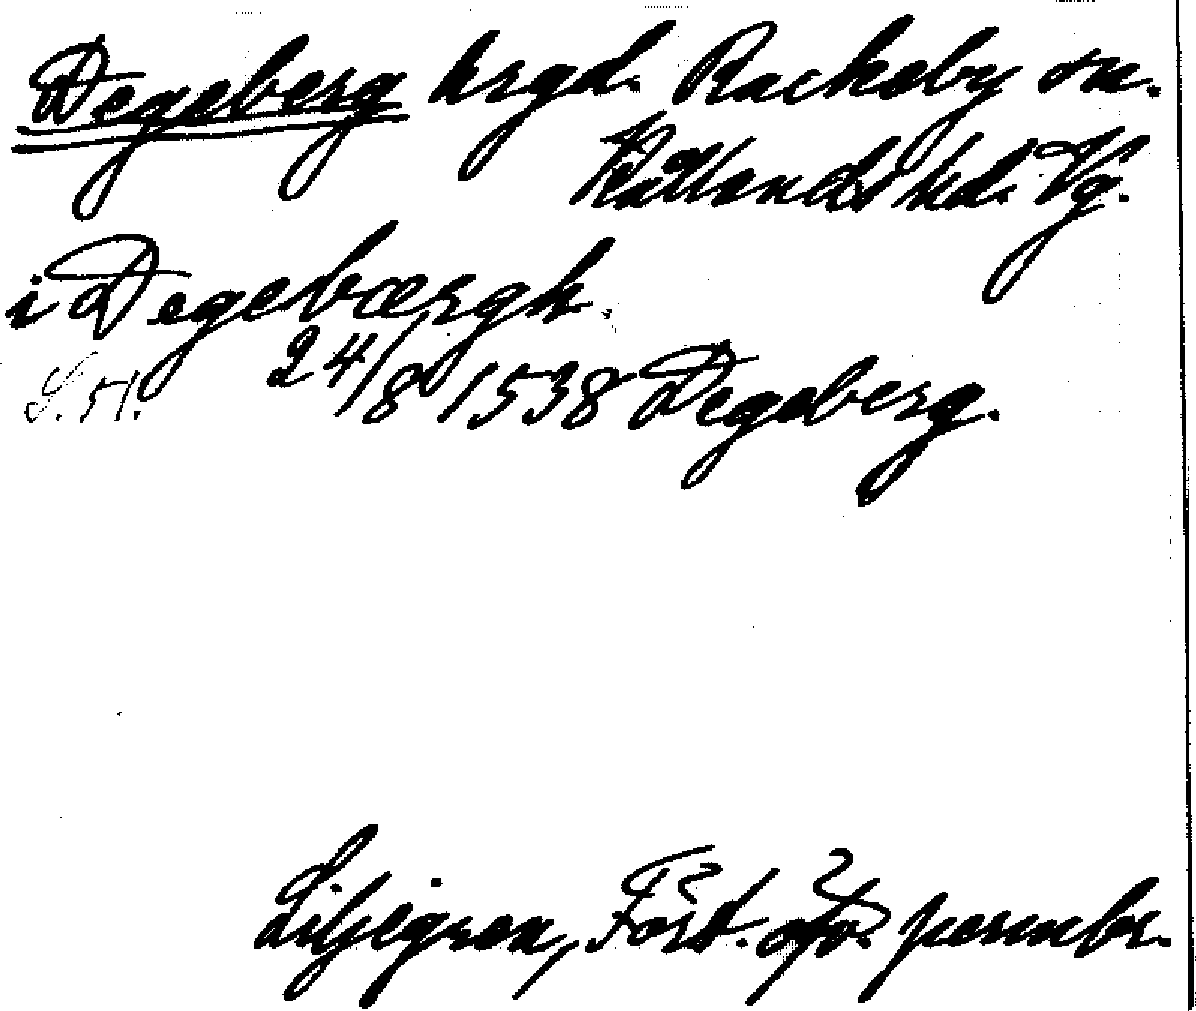 Degeberg hrgd. Rackeby sn.
Kållands hd. Vg.
i Degebærgh.
24/8 1538 Degeberg.
S. 51.
Liljegren, Fört. permbr.